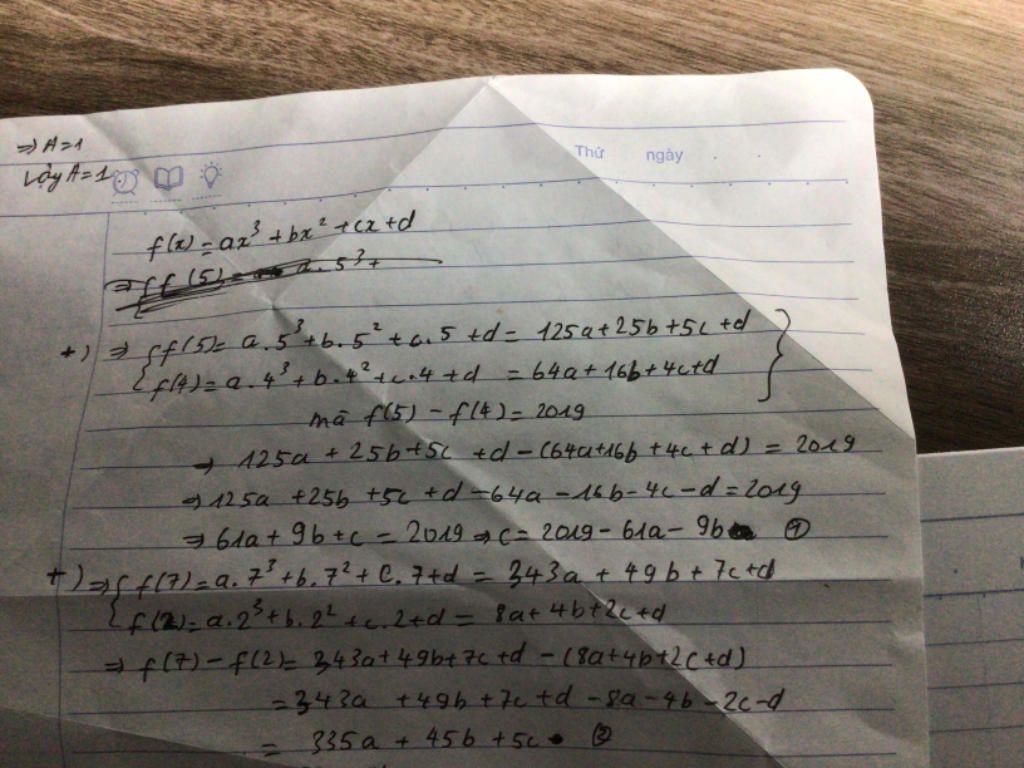 ⇒ A=1
Vậy A=1
Thứ ngày
f(x)=ax³+bx²+cx+d
⇒ f(5) = a.5³+
+) ⇒ {f(5)= a.5³+b.5²+c.5+d= 125a+25b+5c+d}
{f(4)= a.4³+b.4²+c.4+d = 64a+16b+4c+d}
mà f(5)-f(4)=2019
⇒ 125a+25b+5c+d-(64a+16b+4c+d) = 2019
⇒ 125a+25b+5c+d-64a-16b-4c-d=2019
⇒ 61a+9b+c=2019 ⇒ c= 2019-61a-9b ①
+) ⇒ {f(7)=a.7³+b.7²+C.7+d = 343a+49b+7c+d
{f(2)=a.2³+b.2²+c.2+d= 8a+4b+2c+d
⇒ f(7)-f(2)= 343a+49b+7c+d-(8a+4b+2c+d)
=343a+49b+7c+d-8a-4b-2c-d
= 335a+45b+5c ②